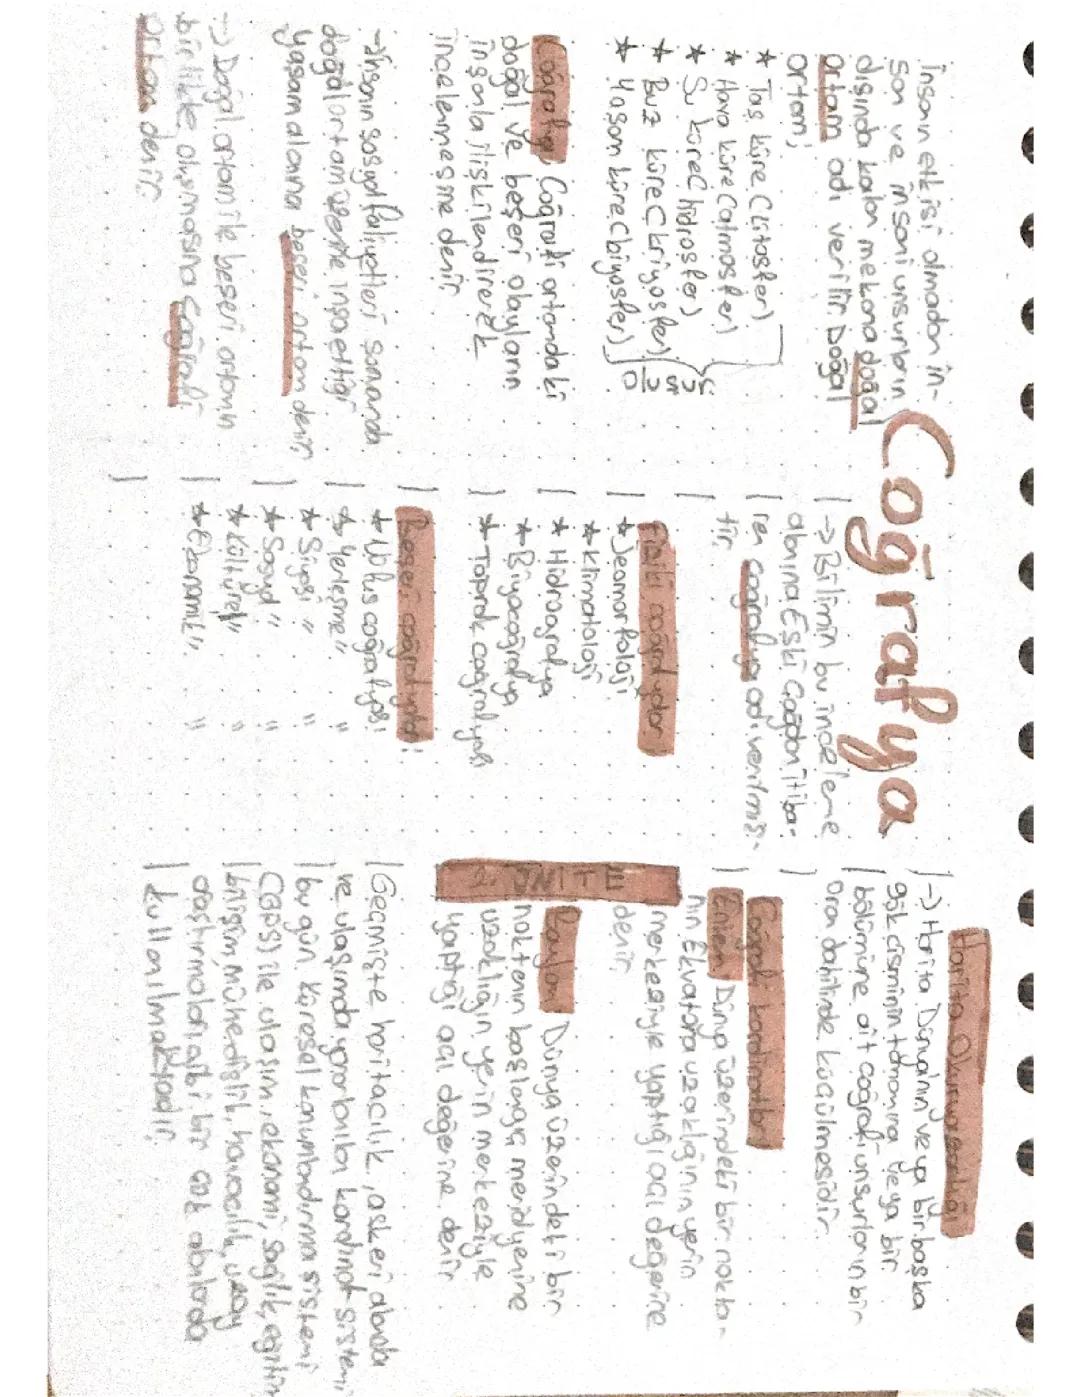 Coğrafya
İnsanın etkisi olmadan in-
san ve insani unsurların
dışında kalan mekana doğal
ortam adı verilir. Doğal
ortam;
★ Taş küre (Litosfer)
★ Hava küre (atmosfer)
★ Su küre (hidrosfer)
★ Buz küre (kriyosfer)
★ Yaşam küre (biyosfer)
Coğrafya Coğrafi ortamdaki
doğal ve beşeri olayların
insanla ilişkilendirerek
incelenmesine denir
→ İnsanın sosyal faliyetleri sonunda
doğal ortam üzerine inşa ettiği
yaşam alanına beşeri ortam denir
→ Doğal ortam ile beşeri ortamın
birlikte oluşmasına coğrafi
ortam denir.
→ Bilimin bu inceleme
alanına Eski Çağdan itiba-
ren coğrafya adı verilmiş-
tir.
Fiziki coğrafya
★ Jeomorfoloji
★ Klimatoloji
★ Hidrografya
★ Biyocoğrafya
★ Toprak coğrafyası
Beşeri coğrafya
★ Nüfus coğrafyası
★ Yerleşme " "
★ Siyasi " "
★ Sosyal " "
★ Kültürel " "
★ Ekonomik " "
Harita Okuryazarlığı
→ Harita Dünya'nın veya bir başka
gök cisminin tamamına veya bir
bölümüne ait coğrafi unsurların bir
oran dahilinde küçülmesidir.
Coğrafi kordinatları
Enlem Dünya üzerindeki bir nokta-
nın Ekvatora uzaklığının yerin
merkeziyle yaptığı açı değerine
denir.
2. ÜNİTE
Boylam Dünya üzerindeki bir
noktanın başlangıç meridyenine
uzaklığın yerin merkeziyle
yaptığı açı değerine denir
Geçmişte haritacılık, askeri alanda
ve ulaşımda yararlanılan kordinat sistemi
bu gün. Küresel konumlandırma sistemi
(GPS) ile ulaşım, ekonomi, sağlık, eğitim
bilişim, mühedislik, havacılık, uzay
araştırmaları gibi bir çok alanlarda
kullanılmaktadır.